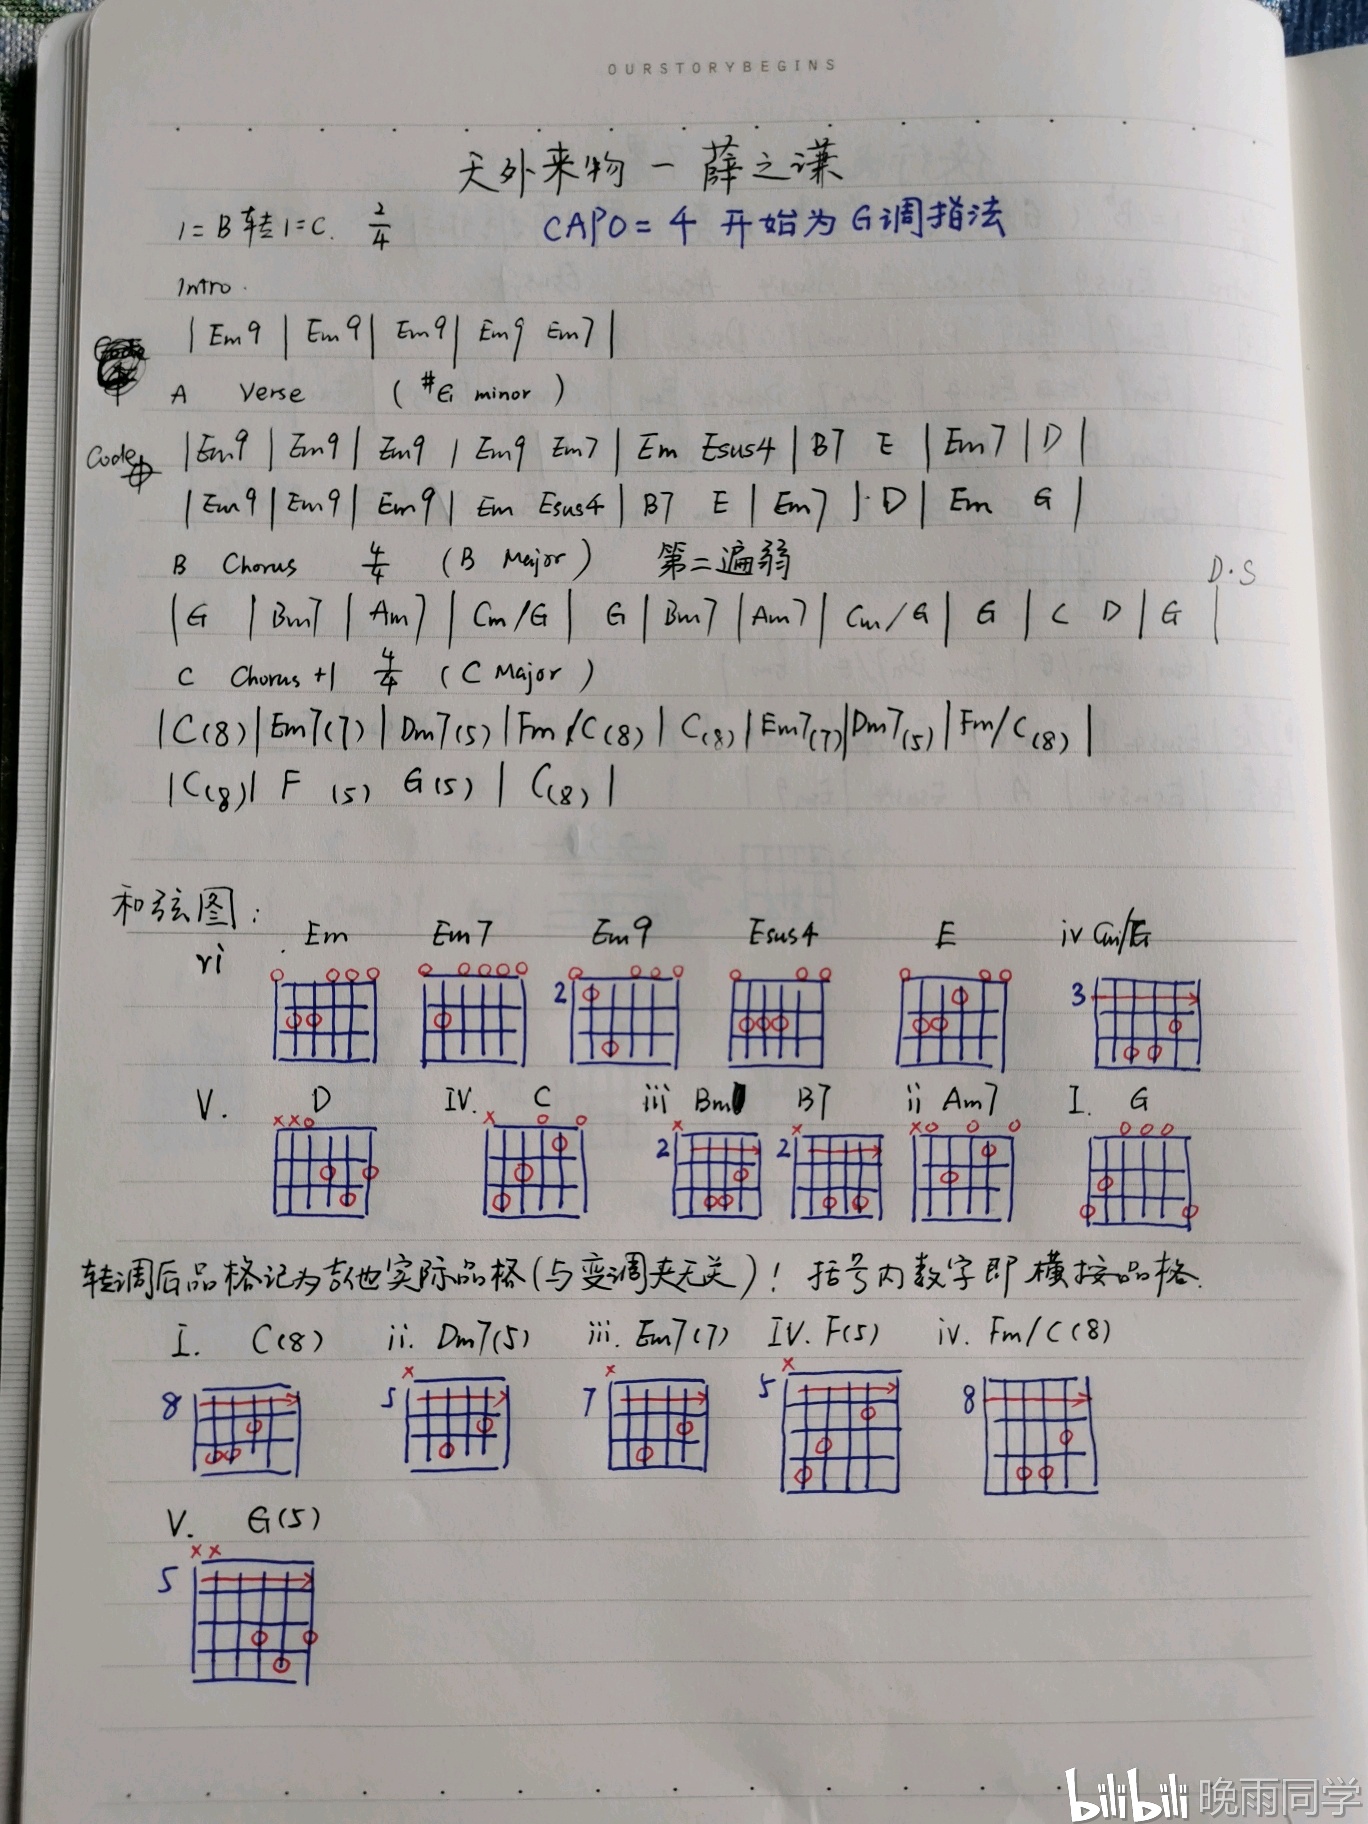 OURSTORYBEGINS
天外来物 — 薛之谦
1=B转1=C. 2/4 CAPO=4 开始为G调指法
Intro.
| Em9 | Em9 | Em9 | Em9 Em7 |
A Verse (#G minor)
Code | Em9 | Em9 | Em9 | Em9 Em7 | Em Esus4 | B7 E | Em7 | D |
| Em9 | Em9 | Em9 | Em Esus4 | B7 E | Em7 | D | Em G |
B Chorus 4/4 (B Major) 第二遍弱
D.S
| G | Bm7 | Am7 | Cm/G | G | Bm7 | Am7 | Cm/G | G | C D | G |
C Chorus+1 4/4 (C Major)
| C(8) | Em7(7) | Dm7(5) | Fm/C(8) | C(8) | Em7(7) | Dm7(5) | Fm/C(8) |
| C(8) | F (5) G(5) | C(8) |
和弦图:
vi Em Em7 Em9 Esus4 E iv Cm/G
2 3
V. D IV. C iii Bm7 B7 ii Am7 I. G
2 2
转调后品格记为吉他实际品格(与变调夹无关)! 括号内数字即横按品格.
I. C(8) ii. Dm7(5) iii. Em7(7) IV. F(5) iv. Fm/C(8)
8 5 7 5 8
V. G(5)
5
bilibili 晚雨同学